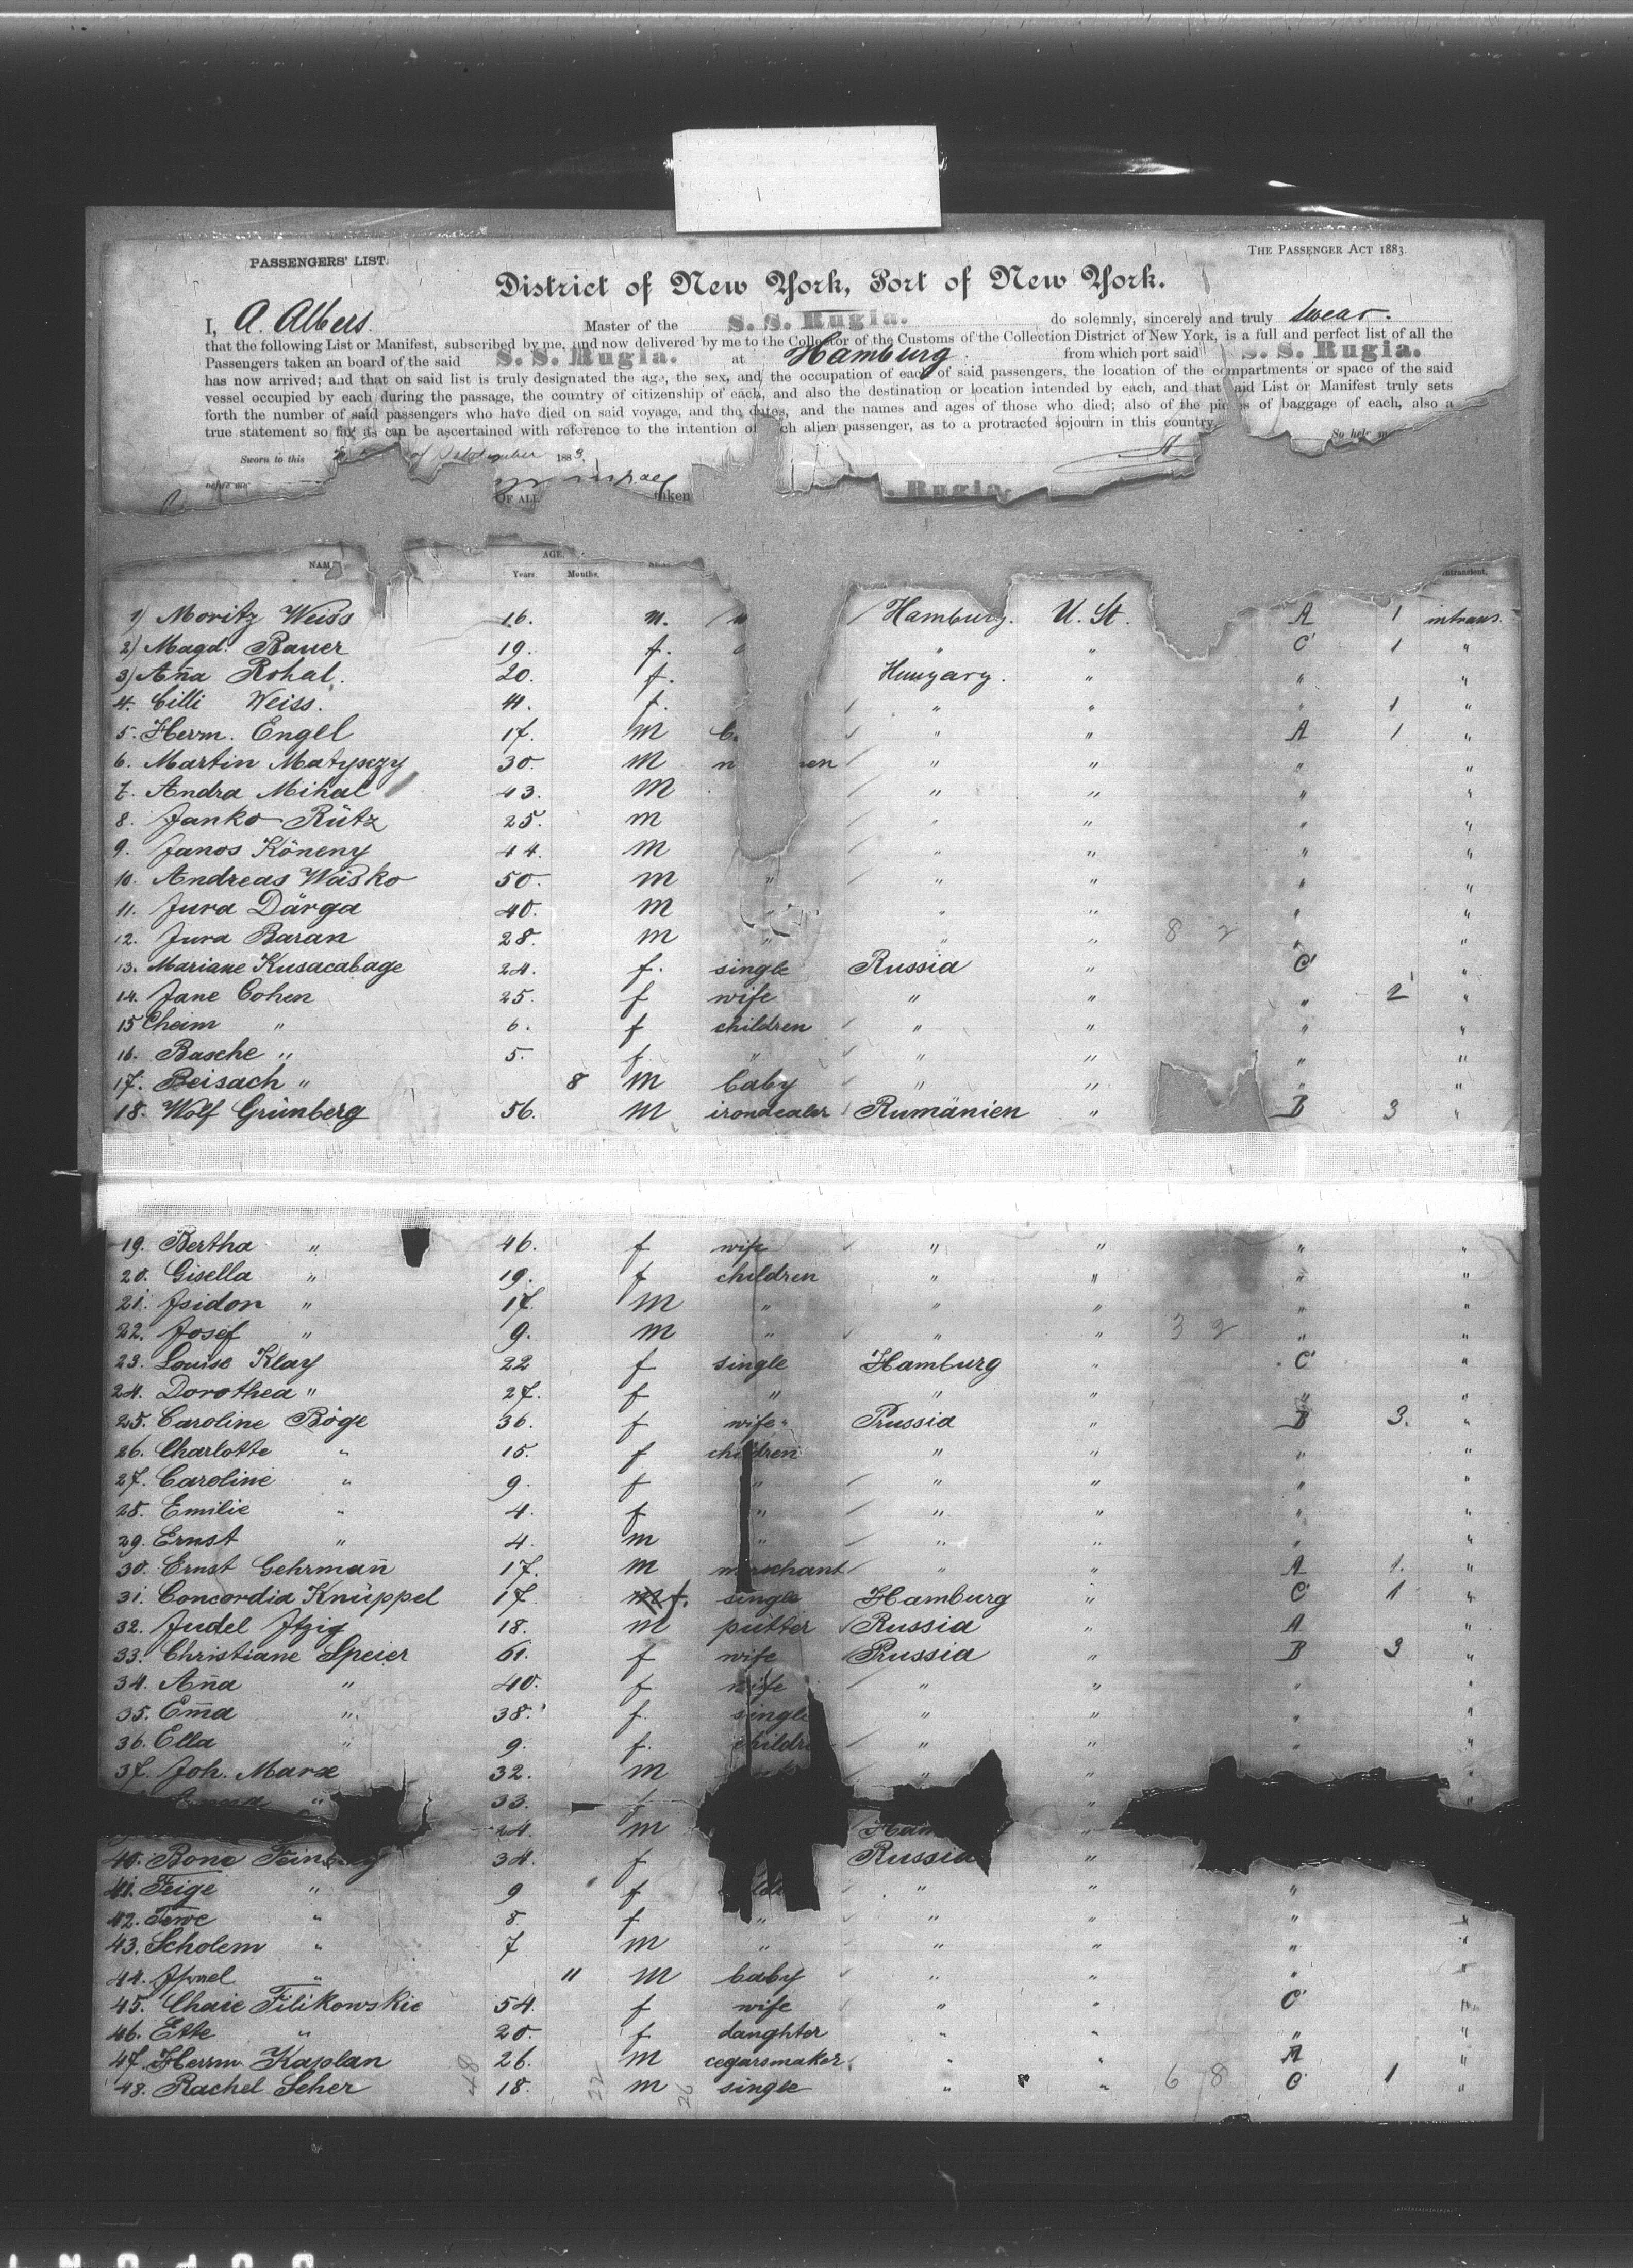 PASSENGERS' LIST.
THE PASSENGER ACT 1883.
District of New York, Port of New York.
I, A. Albers. Master of the S. S. Rugia. do solemnly, sincerely and truly swear.
that the following List or Manifest, subscribed by me, und now delivered by me to the Collector of the Customs of the Collection District of New York, is a full and perfect list of all the
Passengers taken an board of the said S. S. Rugia. at Hamburg. from which port said S. S. Rugia.
has now arrived; and that on said list is truly designated the age, the sex, and the occupation of each of said passengers, the location of the compartments or space of the said
vessel occupied by each during the passage, the country of citizenship of each, and also the destination or location intended by each, and that said List or Manifest truly sets
forth the number of said passengers who have died on said voyage, and the dates, and the names and ages of those who died; also of the pieces of baggage of each, also a
true statement so far as can be ascertained with reference to the intention of ch alien passenger, as to a protracted sojourn in this country.
So help
Sworn to this of September 1883,
before me
OF ALL taken Rugia.
NAM AGE.
Years. Months.
1) Moritz Weiss 16. m. Hamburg. U. St. A 1 intrans.
2) Magd. Bauer 19. f. " " C 1 "
3) Aña Rohal. 20. f. Hungary. " " "
4. Cilli Weiss. 4. f. " " " 1 "
5. Herm. Engel 17. m " " A 1 "
6. Martin Matyszy 30. m " " " "
7. Andra Mihal 43. m " " " "
8. Janko Rütz 25. m " " " "
9. Janos Köneny 44. m " " " "
10. Andreas Wasko 50. m " " " " "
11. Jura Därga 40. m " " " " "
12. Jura Baran 28. m " " " 8 2 " "
13. Mariane Kusacabage 24. f. single Russia " C "
14. Jane Cohen 25. f wife " " " 2 "
15 Cheim " 6. f children " " " "
16. Basche " 5. f. " " " " "
17. Beisach " 8 m baby " " " "
18. Wolf Grünberg 56. m irondealer Rumänien " B 3 "
19. Bertha " 46. f wife " " " "
20. Gisella " 19. f children " " " "
21. Isidon " 17. m " " " " "
22. Josef " 9. m " " " 3 2 " "
23. Louise Klay 22 f single Hamburg " C "
24. Dorothea " 27. f " " " " "
25. Caroline Böge 36. f wife Prussia " B 3. "
26. Charlotte " 15. f children " " " "
27. Caroline " 9. f " " " " "
28. Emilie " 4. f " " " " "
29. Ernst " 4. m " " " " "
30. Ernst Gehrmañ 17. m merchant " " A 1. "
31. Concordia Knüppel 17 f. single Hamburg " C 1 "
32. Judel Itzig 18. m putter Russia " A "
33. Christiane Speier 61. f wife Prussia " B 3 "
34. Aña " 40. f wife " " " "
35. Em̄a " 38. f. single " " " "
36. Ella " 9. f. childre " " " "
37. Joh. Marx 32. m " " "
" 33. f " "
24. m Ham "
40. Bone Feinberg 34. f Russia "
41. Feige " 9 f " " " "
42. Tewe " 8. f " " " " "
43. Scholem " 7 m " " " " "
44. Israel " 11 m baby " " " "
45. Chaie Filikowskie 54. f wife " " C "
46. Ette " 20. f daughter " " " "
47. Herrm. Kaplan 26. m cegarsmaker " " A "
48. Rachel Seher 18. m single " " 6 8 C 1 "
48 22 26